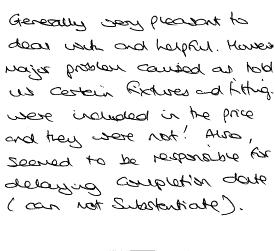 Generally very pleasant to
deal with and helpful. However
major problem caused as told
us certain fixtures and fitting.
were included in the price
and they were not! Also,
seemed to be responsible for
delaying completion date
( can not substantiate).